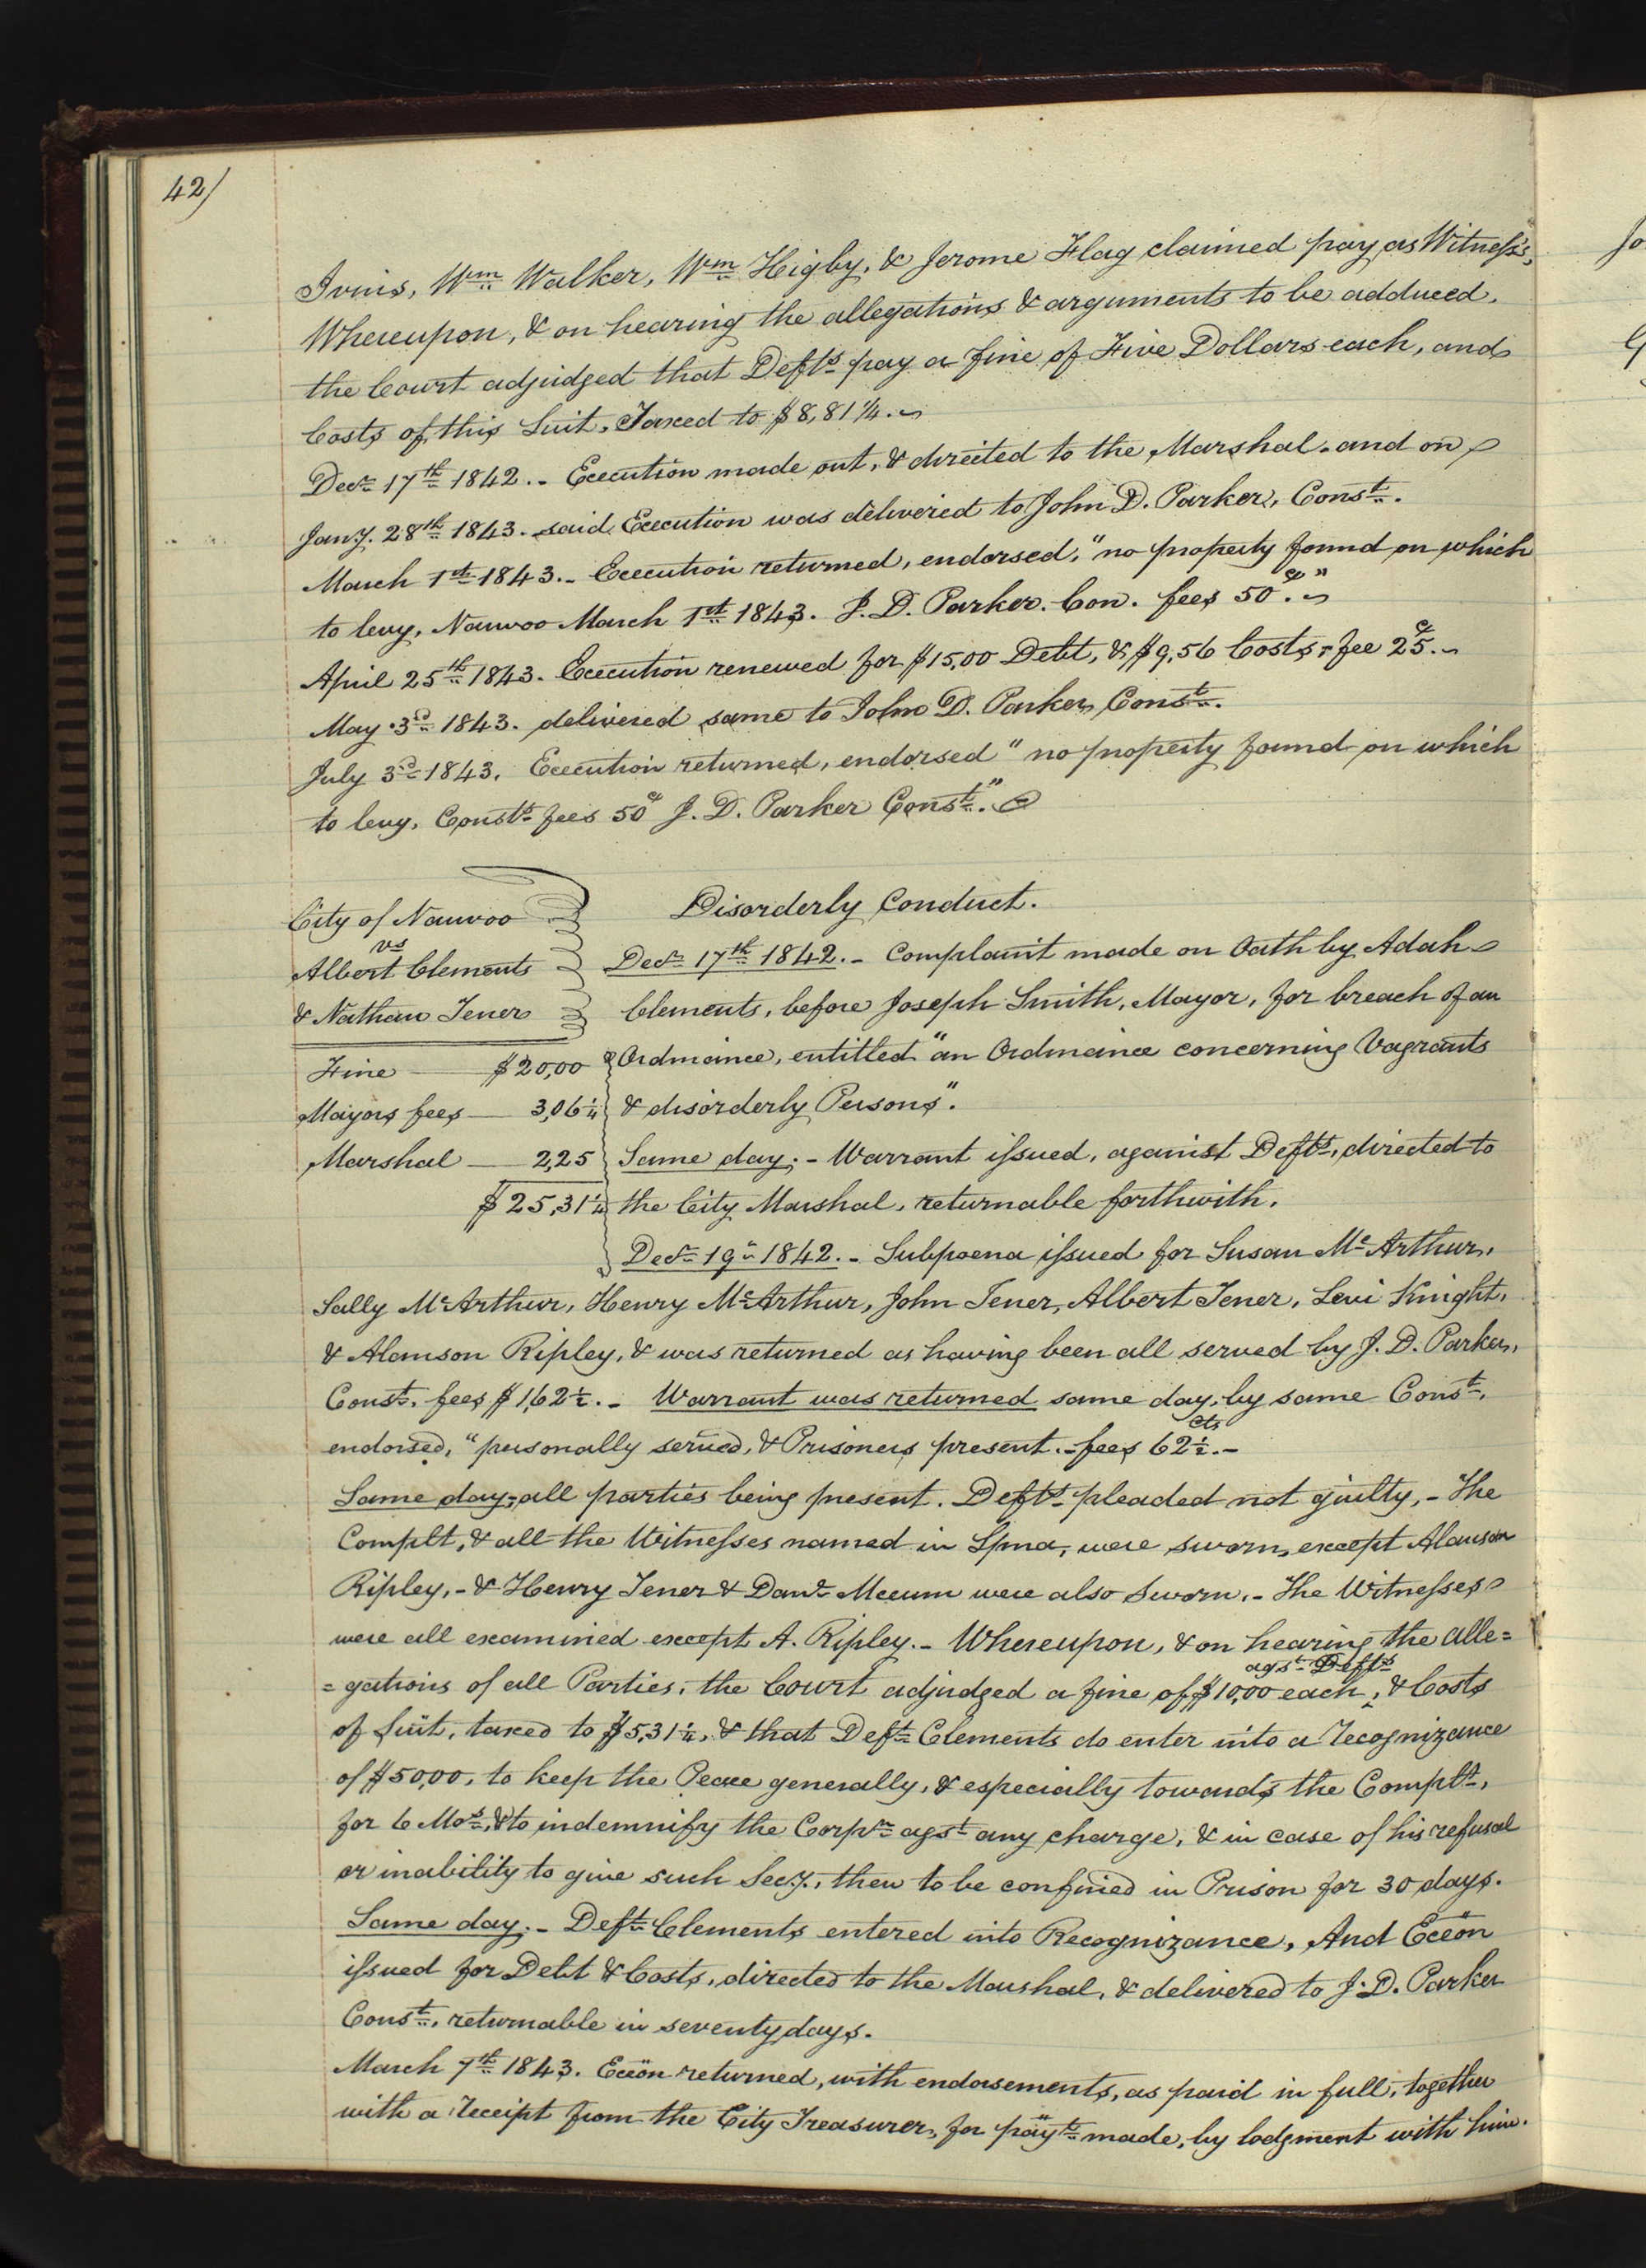 42)
Ivins, Wm Walker, Wm Higby, & Jerome Flag claimed pay as Witness's,
Whereupon, & on hearing the allegations & arguments to be adduced.
the Court adjudged that Defts pay a fine of Five Dollars each, and
Costs of this Suit, Taxed to $8,81¼.
Decr 17th 1842. - Execution made out, & directed to the Marshal. and on
Jany. 28th 1843. said Execution was delivered to John D. Parker, Const.
March 1st 1843. - Execution returned, endorsed, "no property found on which
to levy, Nauvoo March 1st 1843. J. D. Parker. Con. fees 50c."
April 25th 1843. Execution renewed for $15,00 Debt, & $9,56 Costs, fee 25c.
May 3d 1843. delivered same to John D. Parker, Const.
July 3d 1843. Execution returned, endorsed "no property found on which
to levy, Consts fees 50c J. D. Parker Const."
City of Nauvoo
vs
Albert Clements
& Nathan Tener
Fine $20,00
Mayors fees 3,06¼
Marshal 2,25
$25,31¼
Disorderly Conduct.
Decr 17th 1842. - Complaint made on Oath by Adah
Clements, before Joseph Smith, Mayor, for breach of an
Ordinance, entitled "an Ordinance concerning Vagrants
& disorderly Persons".
Same day. - Warrant issued, against Defts, directed to
the City Marshal, returnable forthwith.
Decr 19th 1842. - Subpoena issued for Susan McArthur,
Sally McArthur, Henry McArthur, John Tener, Albert Tener, Levi Knight,
& Alanson Ripley, & was returned as having been all served by J. D. Parker,
Const. fees $1,62½. - Warrant was returned same day, by same Const,
endorsed, "personally served, & Prisoners present. - fees 62½ cts. -
Same day, all parties being present. Defts pleaded not guilty, - The
Complt, & all the Witnesses named in Spna, were sworn, except Alanson
Ripley, - & Henry Tener & Danl Mecum were also Sworn. - The Witnesses
were all examined except A. Ripley. - Whereupon, & on hearing the alle=
=gations of all Parties, the Court adjudged a fine of $10,00 each agst Defts, & Costs
of Suit, taxed to $5,31¼, & that Deft Clements do enter into a recognizance
of $50,00, to keep the Peace generally, & especially towards the Complt,
for 6 Mos, & to indemnify the Corpn agst any charge, & in case of his refusal
or inability to give such Secy, then to be confined in Prison for 30 days.
Same day. - Deft Clements entered into Recognizance, And Exeön
issued for Debt & Costs, directed to the Marshal, & delivered to J. D. Parker
Const, returnable in seventy days.
March 7th 1843. Exeön returned, with endorsements, as paid in full, together
with a receipt from the City Treasurer, for päyt made, by lodgment with him.